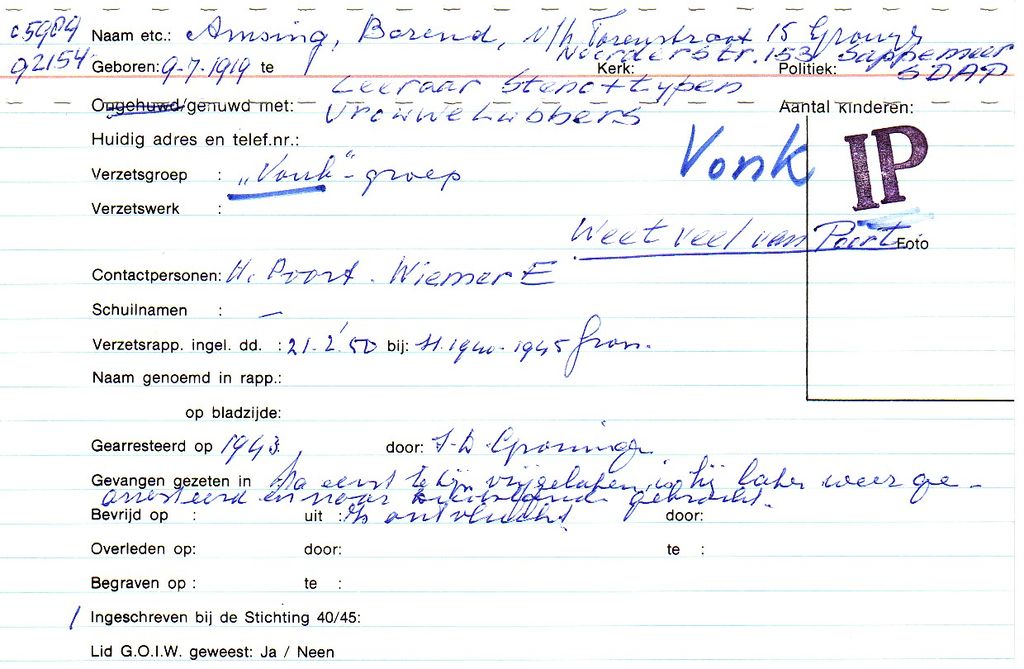 c5989 Naam etc.: Amsing, Barend, v/h Torenstraat 15 Groningen
92154 Geboren: 9-7-1919 te Noorderstr. 153 Sappemeer
Kerk: Politiek: SDAP
Leeraar Steno + typen
Ongehuwd/gehuwd met: Vrouwke Lubbers Aantal kinderen:
Huidig adres en telef.nr.:
Vonk IP
Verzetsgroep : "Vonk"-groep
Verzetswerk :
Weet veel van Poort Foto
Contactpersonen: H. Poort. Wiemer E
Schuilnamen : —
Verzetsrapp. ingel. dd. : 21.2.'50 bij: St. 1940-1945 Gron.
Naam genoemd in rapp.:
op bladzijde:
Gearresteerd op 1943. door: S.D. Groningen
Gevangen gezeten in Na eerst te zijn vrijgelaten, is hij later weer ge-
arresteerd en naar gebracht.
Bevrijd op : uit : Is ontvlucht. door:
Overleden op: door: te :
Begraven op : te :
/ Ingeschreven bij de Stichting 40/45:
Lid G.O.I.W. geweest: Ja / Neen